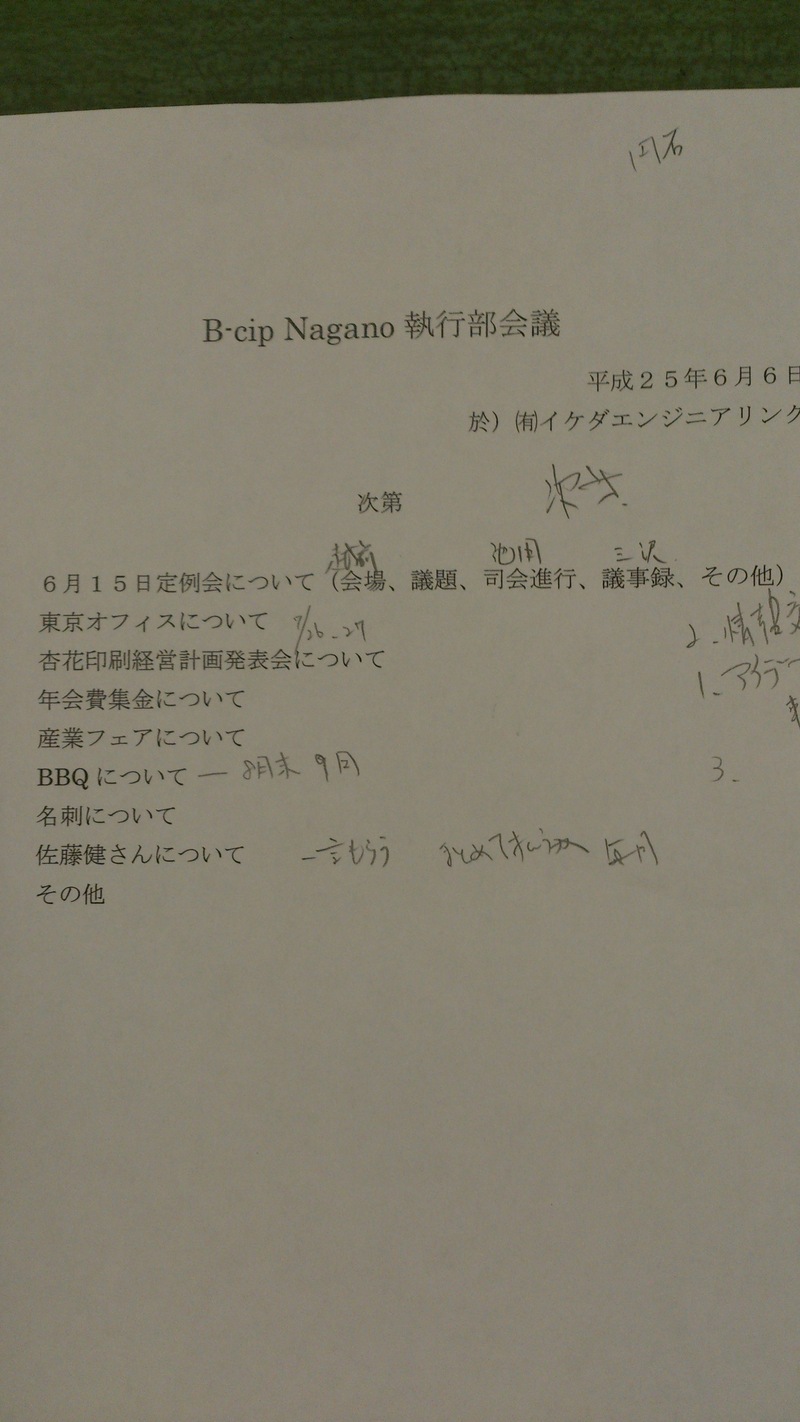 B-cip Nagano 執行部会議
平成２５年６月６日
於）㈲イケダエンジニアリング
次第
三沢
６月１５日定例会について（会場、議題、司会進行、議事録、その他）
東京オフィスについて 7/26-27
2-情報交
杏花印刷経営計画発表会について
1-
年会費集金について
産業フェアについて
BBQ について ― 8月末 9月
3-
名刺について
佐藤健さんについて
その他